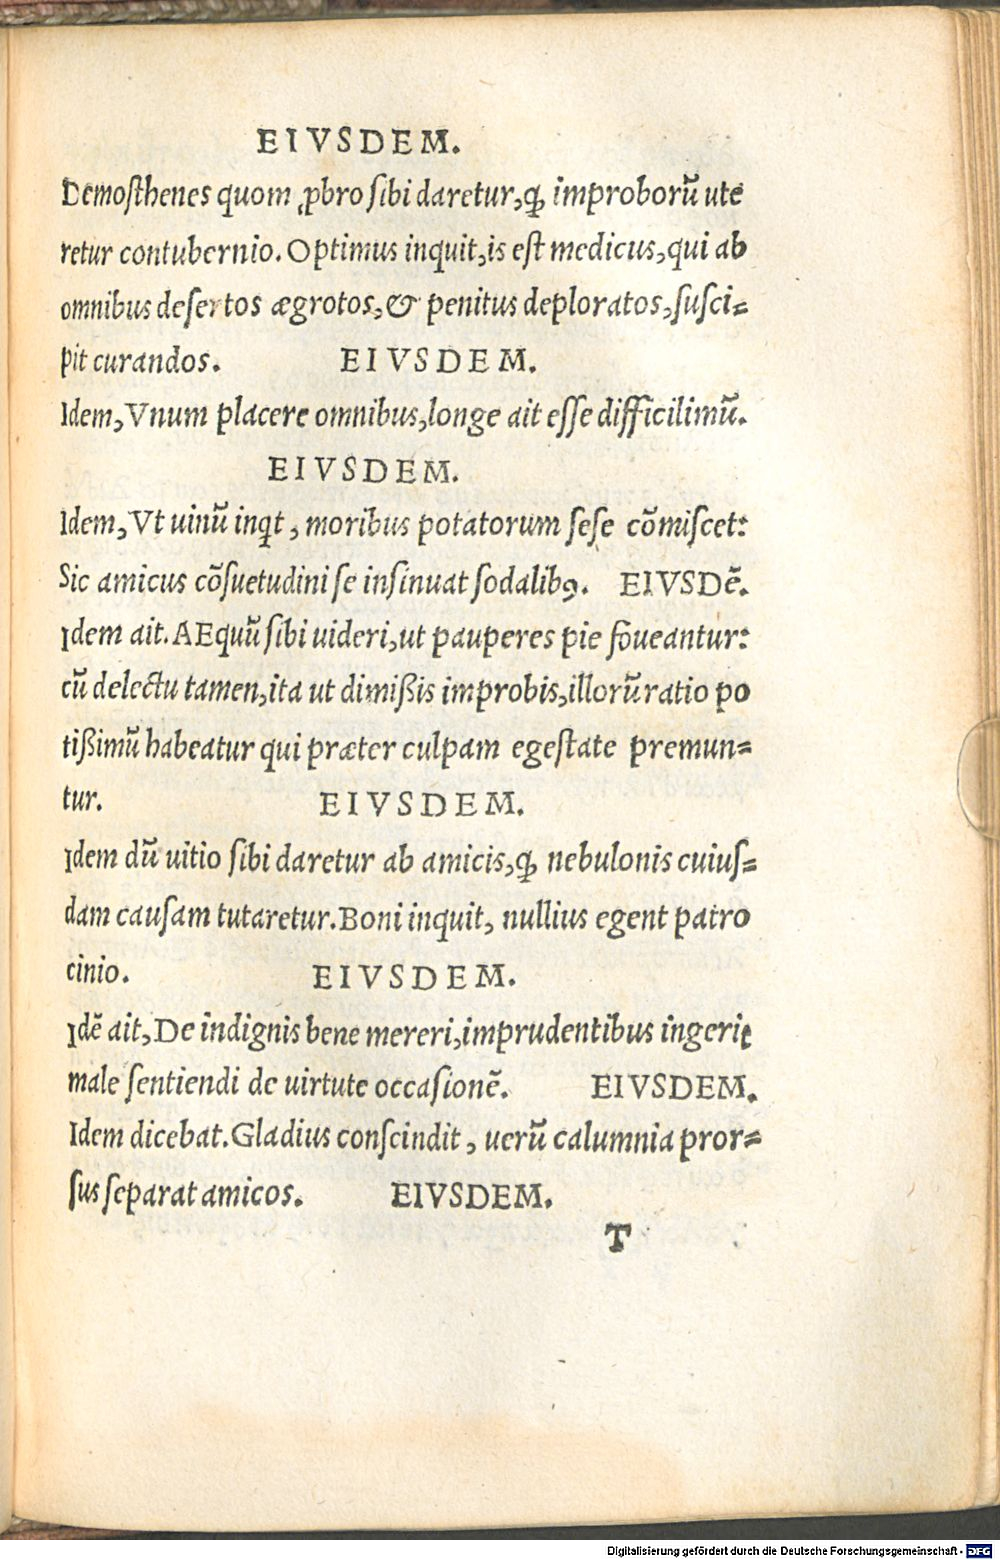 EIVSDEM.
Demosthenes quom ꝓbro sibi daretur, ꝙ improborũ ute
retur contubernio. Optimus inquit, is est medicus, qui ab
omnibus desertos ægrotos, & penitus deploratos, susci-
pit curandos. EIVSDEM.
Idem, Vnum placere omnibus, longe ait esse difficilimũ.
EIVSDEM.
Idem, Vt uinũ inqt, moribus potatorum sese cõmiscet:
Sic amicus cõsuetudini se insinuat sodalibꝯ. EIVSDẽ.
Idem ait. AEquũ sibi uideri, ut pauperes pie foueantur:
cũ delectu tamen, ita ut dimißis improbis, illorũ ratio po
tißimũ habeatur qui præter culpam egestate premun-
tur. EIVSDEM.
Idem dũ uitio sibi daretur ab amicis, ꝙ nebulonis cuius-
dam causam tutaretur. Boni inquit, nullius egent patro
cinio. EIVSDEM.
Idẽ ait, De indignis bene mereri, imprudentibus ingeri
male sentiendi de uirtute occasionẽ. EIVSDEM.
Idem dicebat. Gladius conscindit, uerũ calumnia pror-
sus separat amicos. EIVSDEM.
T
Digitalisierung gefördert durch die Deutsche Forschungsgemeinschaft - DFG